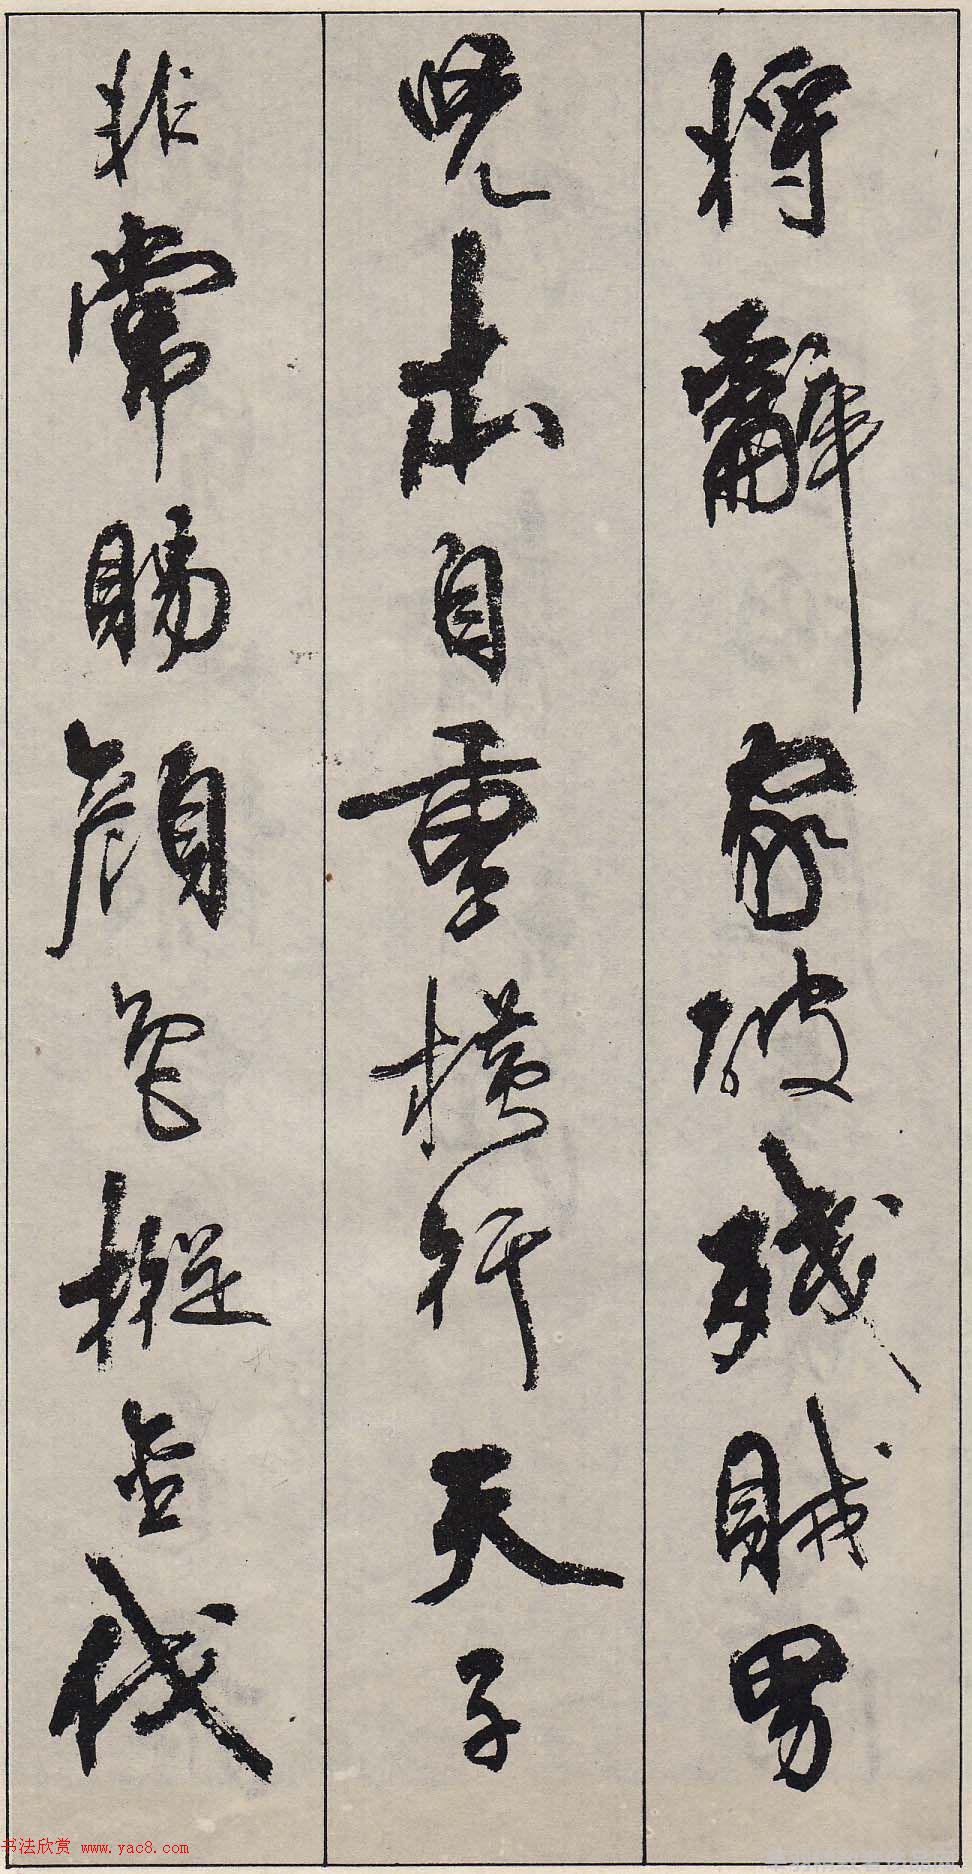 將辭家破殘賊男
兒本自重横行天子
非常賜顔色摐金伐
书法欣赏 www.yac8.com